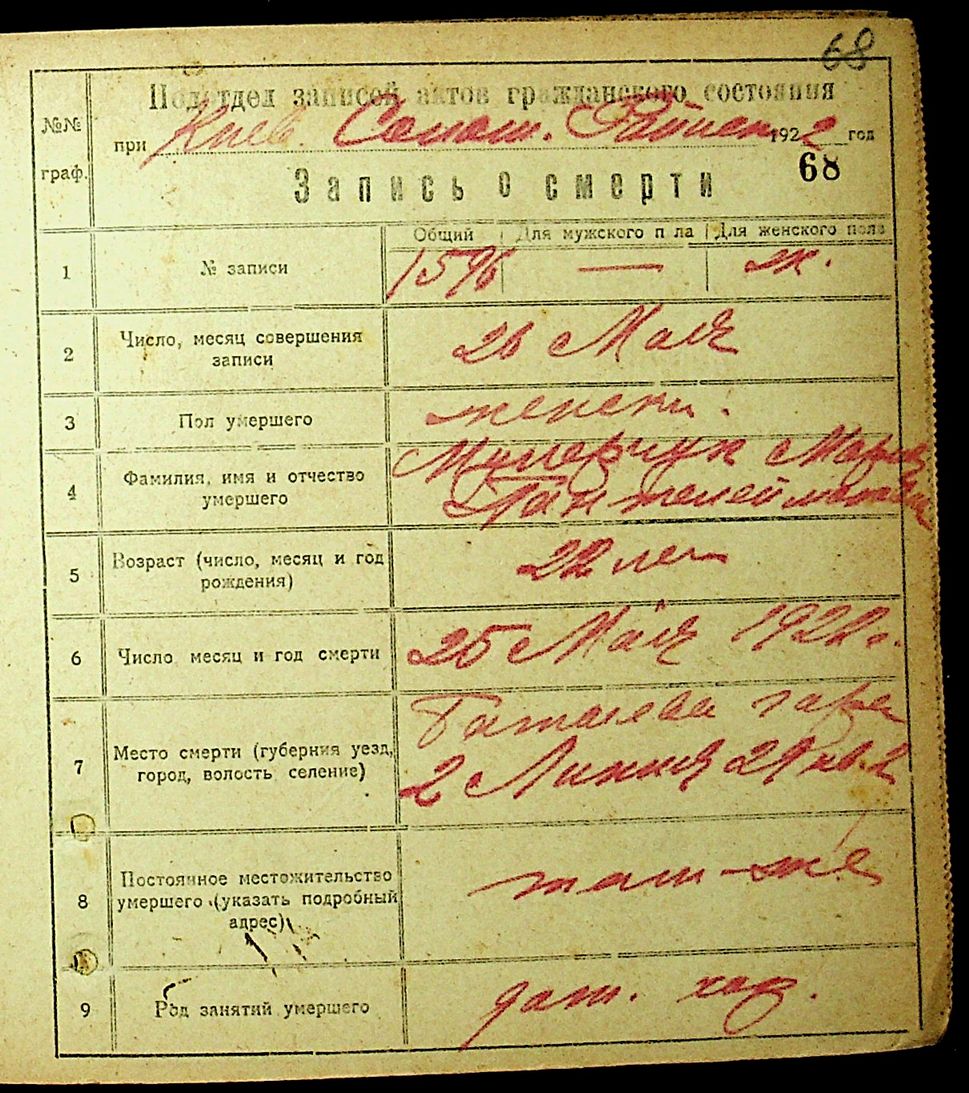 68
Подотдел записей актов гражданского состояния
№№ граф.
при Киев. Солом. Район 1922 год
68
Запись о смерти
Общий Для мужского п ла Для женского пола
1 № записи 1596 — ж.
2 Число, месяц совершения
записи
26 Мая
3 Пол умершего женск.
4 Фамилия, имя и отчество
умершего
Мария
Пантелеймон
5 Возраст (число, месяц и год
рождения)
22 лет
6 Число месяц и год смерти 25 Мая 1922 г.
7 Место смерти (губерния уезд,
город, волость селение)
Батыева гора
2 Линия 29 кв. 2
8 Постоянное местожительство
умершего (указать подробный
адрес)
там-же
9 Род занятий умершего дом. хоз.